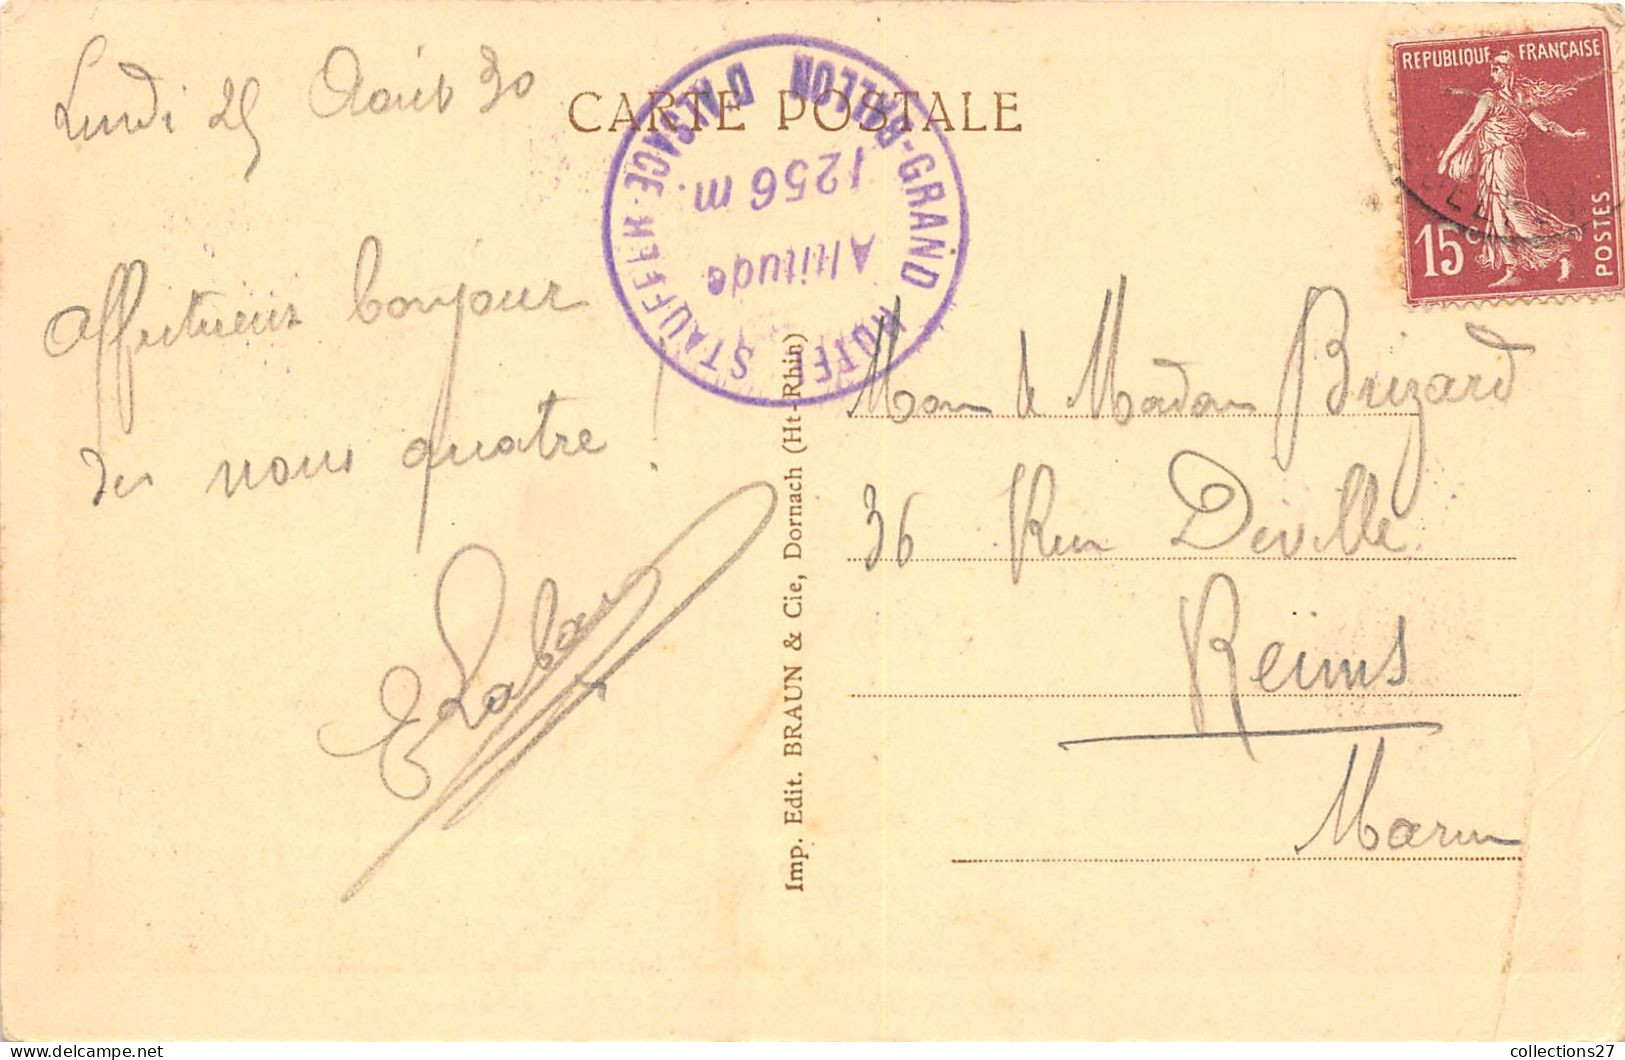 Lundi 25 Août 30
CARTE POSTALE
REPUBLIQUE FRANÇAISE
15c
POSTES
D'ALSACE
BALLON-GRAND
1256 m.
Altitude
Affectueux bonjour
de nous quatre !
Imp. Edit. BRAUN & Cie, Dornach (Ht-Rhin)
Mon & Madam Brizard
36 Rue Deville
Reims
Marne
collections27